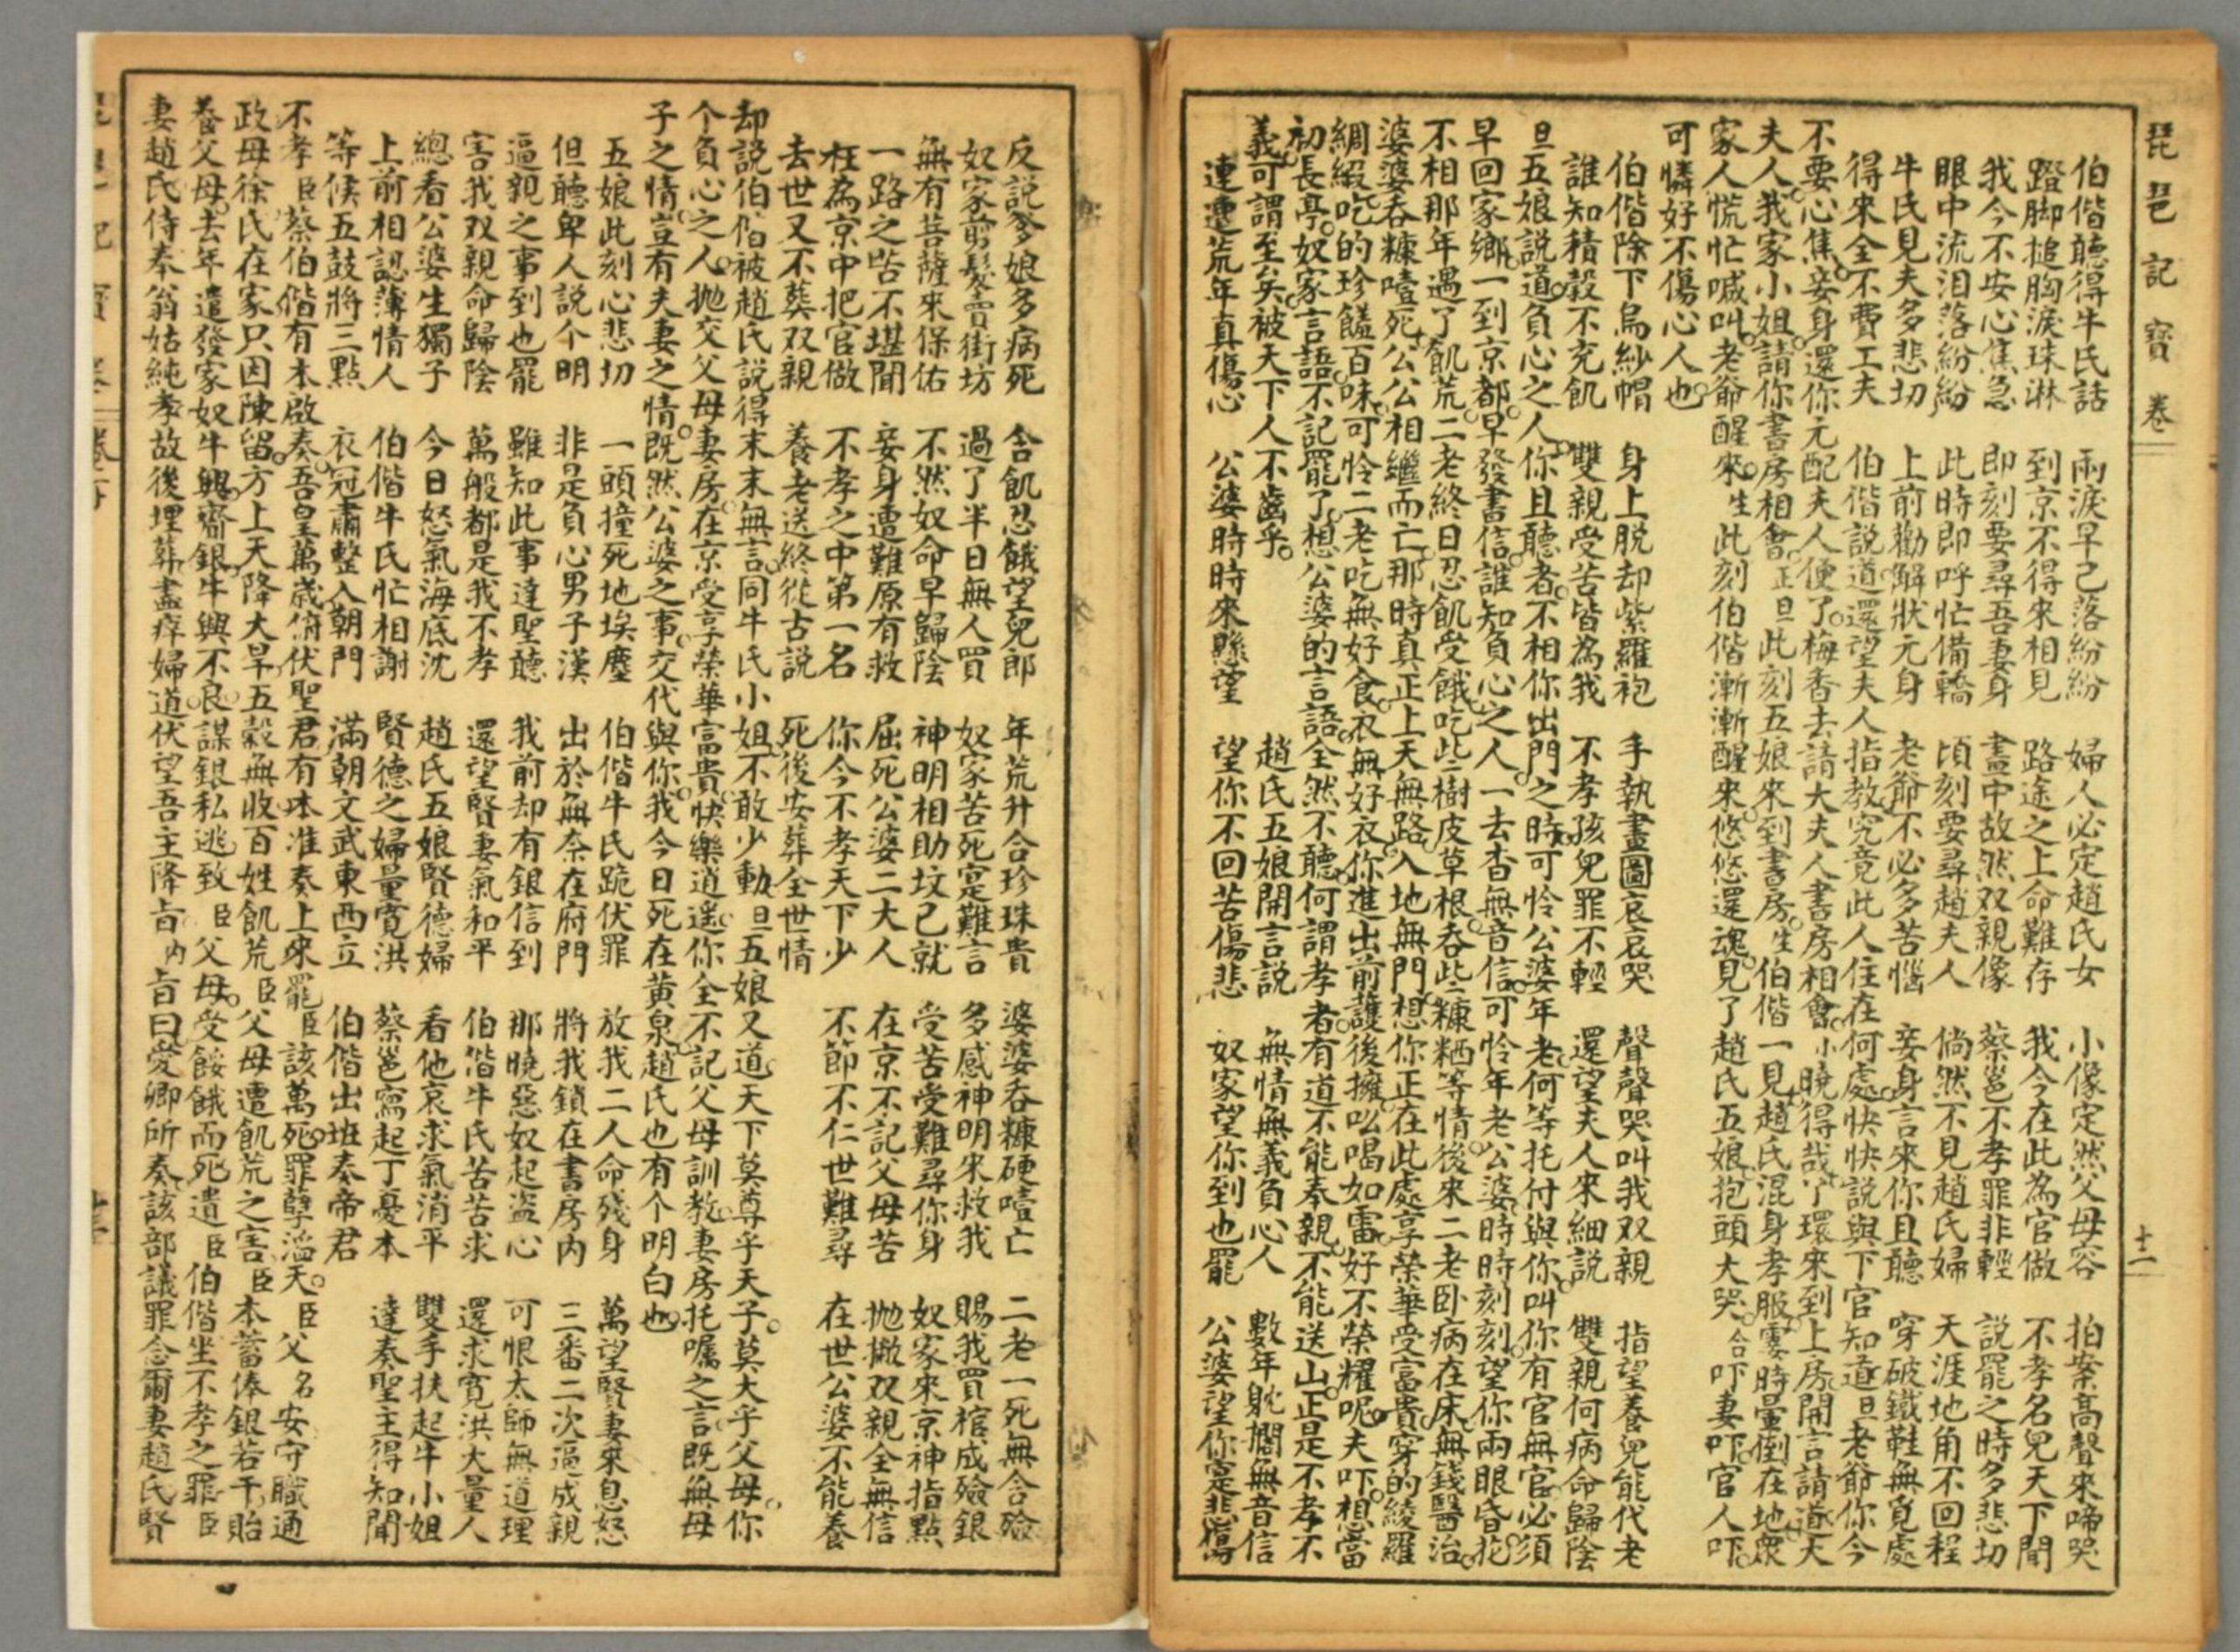 琵琶記寳卷
十二
伯偕聽得牛氏話　兩淚早已落紛紛　婦人必定趙氏女　小像定然父母容　拍案高聲來啼哭
蹬脚搥胸淚珠淋　到京不得來相見　路途之上命難存　我今在此為官做　不孝名兒天下聞
我今不安心焦急　即刻要尋吾妻身　畫中故然双親像　蔡邕不孝罪非輕　説罷之時多悲切
眼中流泪落紛紛　此時即呼忙備轎　頃刻要尋趙夫人　倘然不見趙氏婦　天涯地角不回程
牛氏見夫多悲切　上前勸解狀元身　老爺不必多苦惱　妾身言來你且聽　穿破鐵鞋無覓處
得來全不費工夫　伯偕説道還望夫人指教究竟此人住在何處快快説與下官知道旦老爺你今
不要心焦妾身還你元配夫人便了梅香去請大夫人書房相會小曉得哉丫環來到上房開言請道大
夫人我家小姐請你書房相會正旦此刻五娘來到書房生伯偕一見趙氏混身孝服霎時暈倒在地衆
家人慌忙喊叫老爺醒來生此刻伯偕漸漸醒來悠悠還魂見了趙氏五娘抱頭大哭合吓妻吓官人吓
可憐好不傷心人也
伯偕除下烏紗帽　身上脱却紫羅袍　手執畫圖哀哀哭　聲聲哭叫我双親　指望養兒能代老
誰知積穀不充飢　雙親受苦皆為我　不孝孩兒罪不輕　還望夫人來細説　雙親何病命歸陰
旦五娘説道負心之人你且聽者不相你出門之時可怜公婆年老何等托付與你叫你有官無官必須
早回家鄉一到京都早發書信誰知負心之人一去杳無音信可怜年老公婆時時刻刻望你兩眼昏花
不相那年遇了飢荒二老終日忍飢受餓吃些樹皮草根吞些糠粞等情後來二老卧病在床無錢醫治
婆婆吞糠噎死公公相繼而亡那時真正上天無路入地無門想你正在此處享榮華受富貴穿的綾羅
綢緞吃的珍饈百味可怜二老吃無好食衣無好衣你進出前護後擁吆喝如雷好不榮耀呢夫吓想當
初長亭奴家言語不記罷了想公婆的言語全然不聽何謂孝者有道不能奉親不能送山正是不孝不
義可謂至矣被天下人不齒乎　趙氏五娘開言説　無情無義負心人　數年躭擱無音信
連遭荒年真傷心　公婆時時來懸望　望你不回苦傷悲　奴家望你到也罷　公婆望你寔悲傷
反説爹娘多病死　舍飢忍餓望兒郎　年荒升合珍珠貴　婆婆吞糠硬噎亡　二老一死無含殮
奴家剪髮賣街坊　過了半日無人買　奴家苦死寔難言　多感神明來救我　賜我買棺成殮銀
無有菩薩來保佑　不然奴命早歸陰　神明相助坟已就　受苦受難尋你身　奴家來京神指點
一路之苦不堪聞　妾身遭難原有救　屈死公婆二大人　在京不記父母苦　拋撇双親全無信
枉為京中把官做　不孝之中第一名　你今不孝天下少　不節不仁世難尋　在世公婆不能養
去世又不葬双親　養老送終從古説　死後安葬全世情
却説伯偕被趙氏説得末末無言同牛氏小姐不敢少動旦五娘又道天下莫尊乎天子莫大乎父母你
个負心之人拋交父母妻房在京受享榮華富貴快樂逍遥你全不記父母訓教妻房托嘱之言既無母
子之情豈有夫妻之情既然公婆之事交代與你我今日死在黄泉趙氏也有个明白也
五娘此刻心悲切　一頭撞死地埃塵　伯偕牛氏跪伏罪　放我二人命殘身　萬望賢妻來息怒
但聽卑人説个明　非是負心男子漢　出於無奈在府門　將我鎖在書房内　三番二次逼成親
逼親之事到也罷　雖知此事達聖聽　我前却有銀信到　那曉惡奴起盗心　可恨太師無道理
害我双親命歸陰　萬般都是我不孝　還望賢妻氣和平　伯偕牛氏苦苦求　還求寬洪大量人
總看公婆生獨子　今日怒氣海底沈　趙氏五娘賢德婦　看他哀求氣消平　雙手扶起牛小姐
上前相認薄情人　伯偕牛氏忙相謝　賢德之婦量寬洪　蔡邕寫起丁憂本　達奏聖主得知聞
等候五鼓將三點　衣冠肅整入朝門　滿朝文武東西立　伯偕出班奏帝君
不孝臣蔡伯偕有本啟奏吾皇萬歲俯伏聖君有本准奏上來罷臣該萬死罪孽滔天臣父名安守職通
政母徐氏在家只因陳留方上天降大旱五穀無收百姓飢荒臣父母遭飢荒之害臣本蓄俸銀若干貽
養父母去年遣發家奴牛興齎銀牛興不良謀銀私逃致臣父母受餒餓而死遺臣伯偕坐不孝之罪臣
妻趙氏侍奉翁姑純孝故後埋葬盡瘁婦道伏望吾主降旨内旨曰愛卿所奏該部議罪念爾妻趙氏賢